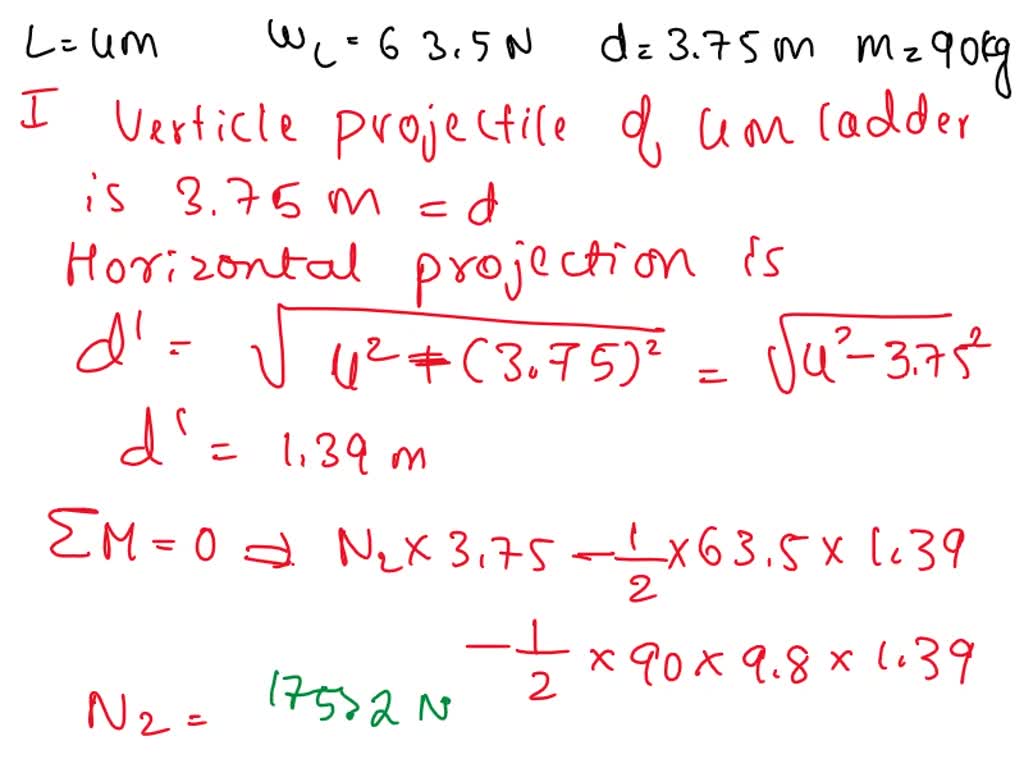 L = 4m W_L = 63.5 N d = 3.75 m m = 90kg
I Verticle projectile of 4m ladder
is 3.75 m = d
Horizontal projection is
d' = √(4² + (3.75)²) = √(4² - 3.75²)
d' = 1.39 m
ΣM = 0 ⇒ N₂ × 3.75 - 1/2 × 63.5 × 1.39
- 1/2 × 90 × 9.8 × 1.39
N₂ = N